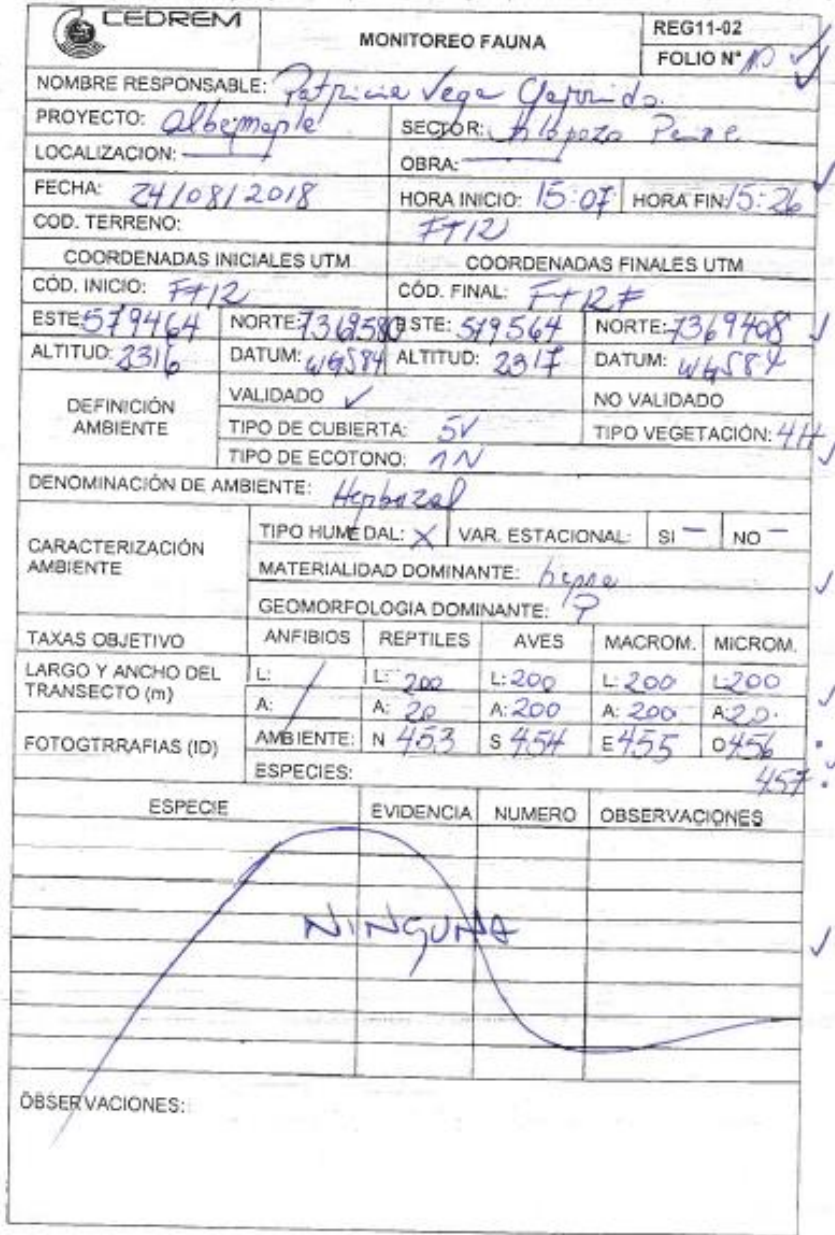 CEDREM
MONITOREO FAUNA
REG11-02
FOLIO N° 10
NOMBRE RESPONSABLE: Patricia Vega Garrido.
PROYECTO: Albemarle
SECTOR: Tilopozo
LOCALIZACION: —
OBRA: —
FECHA: 24/08/2018
HORA INICIO: 15:07 HORA FIN: 15:26
COD. TERRENO: FT12
COORDENADAS INICIALES UTM COORDENADAS FINALES UTM
CÓD. INICIO: FT12 CÓD. FINAL: FT12F
ESTE: 579464 NORTE: 7369580 ESTE: 579564 NORTE: 7369408
ALTITUD: 2316 DATUM: WGS84 ALTITUD: 2317 DATUM: WGS84
DEFINICIÓN AMBIENTE
VALIDADO ✓ NO VALIDADO
TIPO DE CUBIERTA: 5V TIPO VEGETACIÓN: 4H
TIPO DE ECOTONO: 1N
DENOMINACIÓN DE AMBIENTE: Herbazal
CARACTERIZACIÓN AMBIENTE
TIPO HUMEDAL: X VAR. ESTACIONAL: SI — NO —
MATERIALIDAD DOMINANTE:
GEOMORFOLOGIA DOMINANTE: P
TAXAS OBJETIVO ANFIBIOS REPTILES AVES MACROM. MICROM.
LARGO Y ANCHO DEL TRANSECTO (m)
L: / L: 200 L: 200 L: 200 L: 200
A: A: 20 A: 200 A: 200 A: 20.
FOTOGTRRAFIAS (ID)
AMBIENTE: N 453 S 454 E 455 O 456
ESPECIES: 457.
ESPECIE EVIDENCIA NUMERO OBSERVACIONES
NINGUNA
OBSERVACIONES: